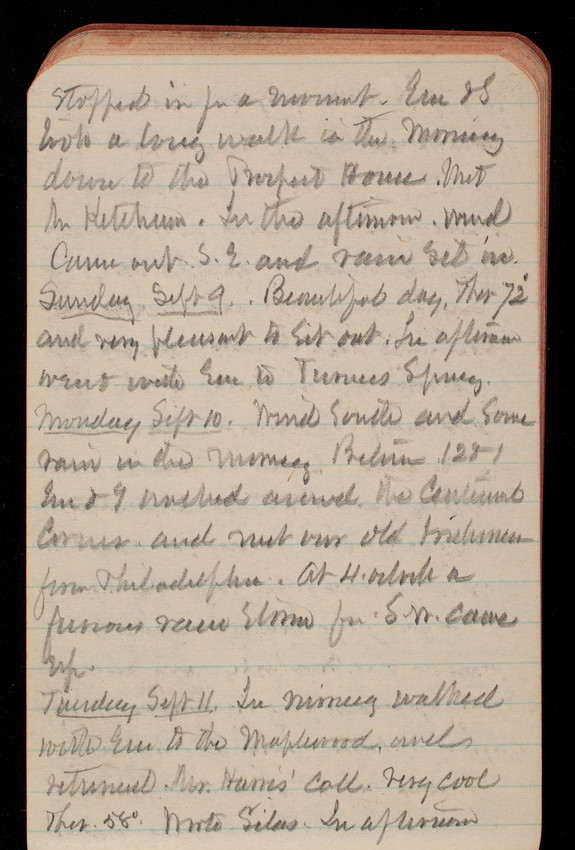 Stopped in for a moment. Em & I
took a long walk in the morning
down to the Prospect House. Met
Mr Ketchum. In the afternoon. wind
Came out S.E. and rain set in.
Sunday Sept 9. Beautiful day, Ther 72°
and very pleasant to sit out. In afternoon
went with Em to Turners Spring.
Monday Sept 10. Wind South and Some
rain in the morning. Between 12 & 1
Em & I walked around the Centennial
Corner. and met our old Irishman
from Philadelphia. At 4. oclock a
furious rain Storm fr. S.W. came
up.
Tuesday Sept 11. In morning walked
with Em to the Maplewood, and
returned Mr. Harris' call. Very cool
Ther. 58°. Wrote Silas. In afternoon